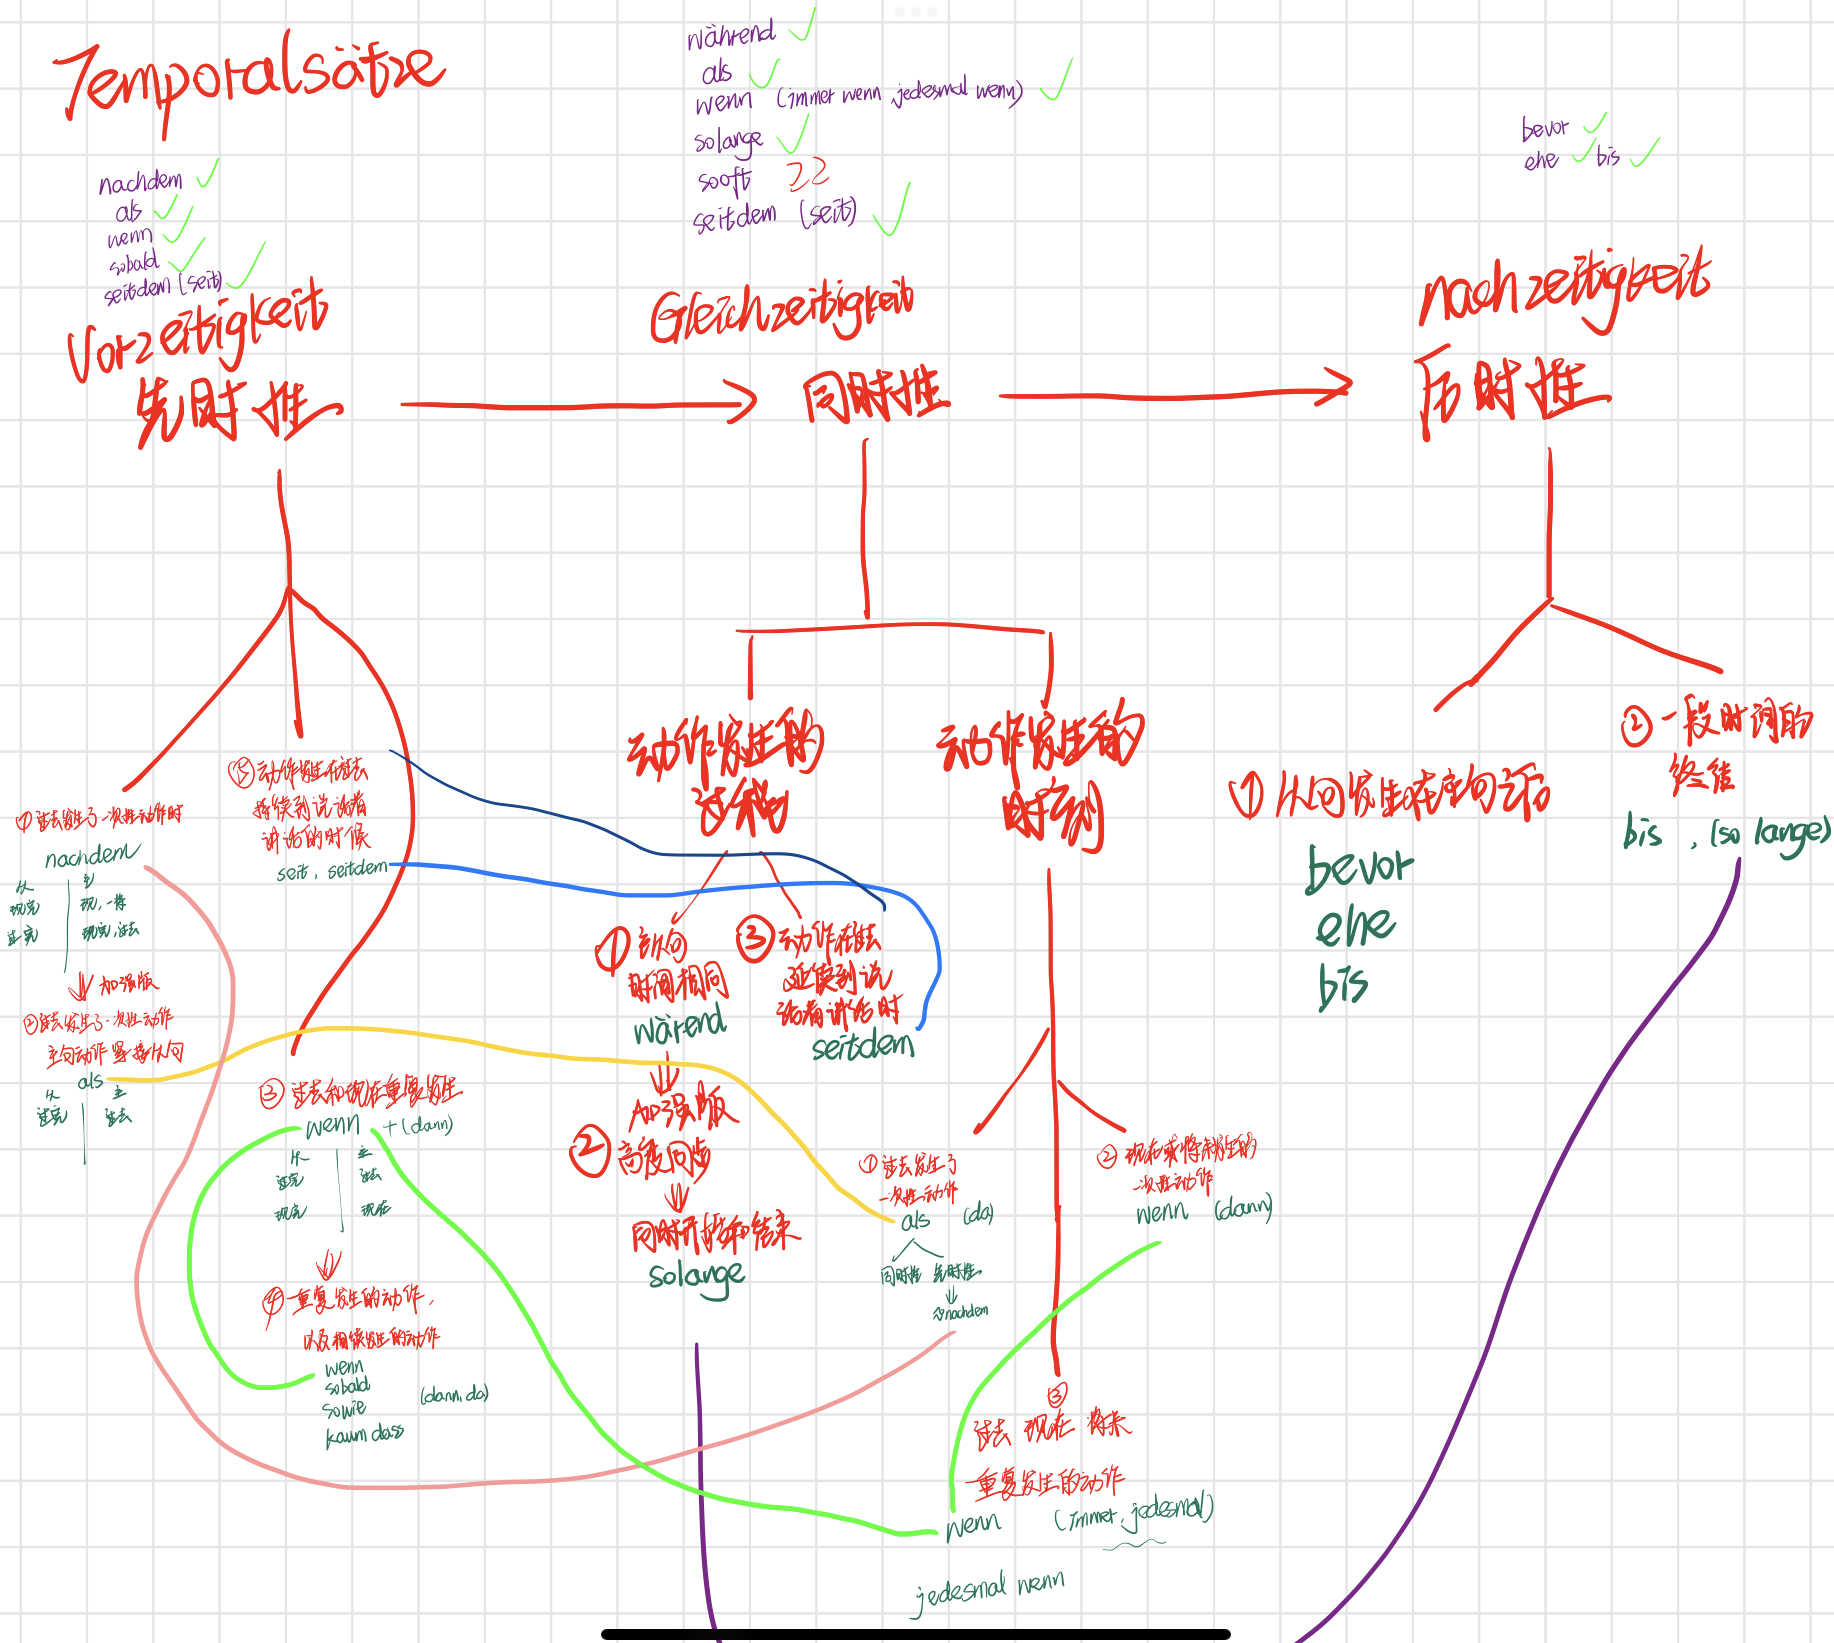 Temporalsätze
nachdem
als
wenn
sobald
seitdem (seit)
Vorzeitigkeit
先时性
während
als
wenn (immer wenn jedesmal wenn)
solange
sooft
seitdem (seit)
Gleichzeitigkeit
同时性
bevor
ehe bis
Nachzeitigkeit
后时性
① 过去发生了一次性动作时
nachdem
从 主
现完 现,一将
过完 现完,过去
加强版
② 过去发生了一次性动作
主句动作紧接从句
als
从 主
过完 过去
⑤ 动作发生在过去
持续到说话者
讲话的时候
seit, seitdem
③ 过去和现在重复发生
wenn +(dann)
从 主
过完 过去
现完 现在
④ 重复发生的动作,
以及相继发生的动作
wenn
sobald
sowie
kaum dass
(dann, da)
动作发生的
过程
① 主从句
时间相同
wärend
加强版
② 高度同步
同时开始和结束
solange
③ 动作在过去
延续到说
话者讲话时
seitdem
动作发生的
时刻
① 过去发生了
一次性动作
als (da)
同时性 先时性
nachdem
② 现在或将来发生的
一次性动作
wenn (dann)
③
过去 现在 将来
重复发生的动作
wenn (immer, jedesmal)
jedesmal wenn
① 从句发生在主句之后
bevor
ehe
bis
② 一段时间的
终结
bis , (so lange)